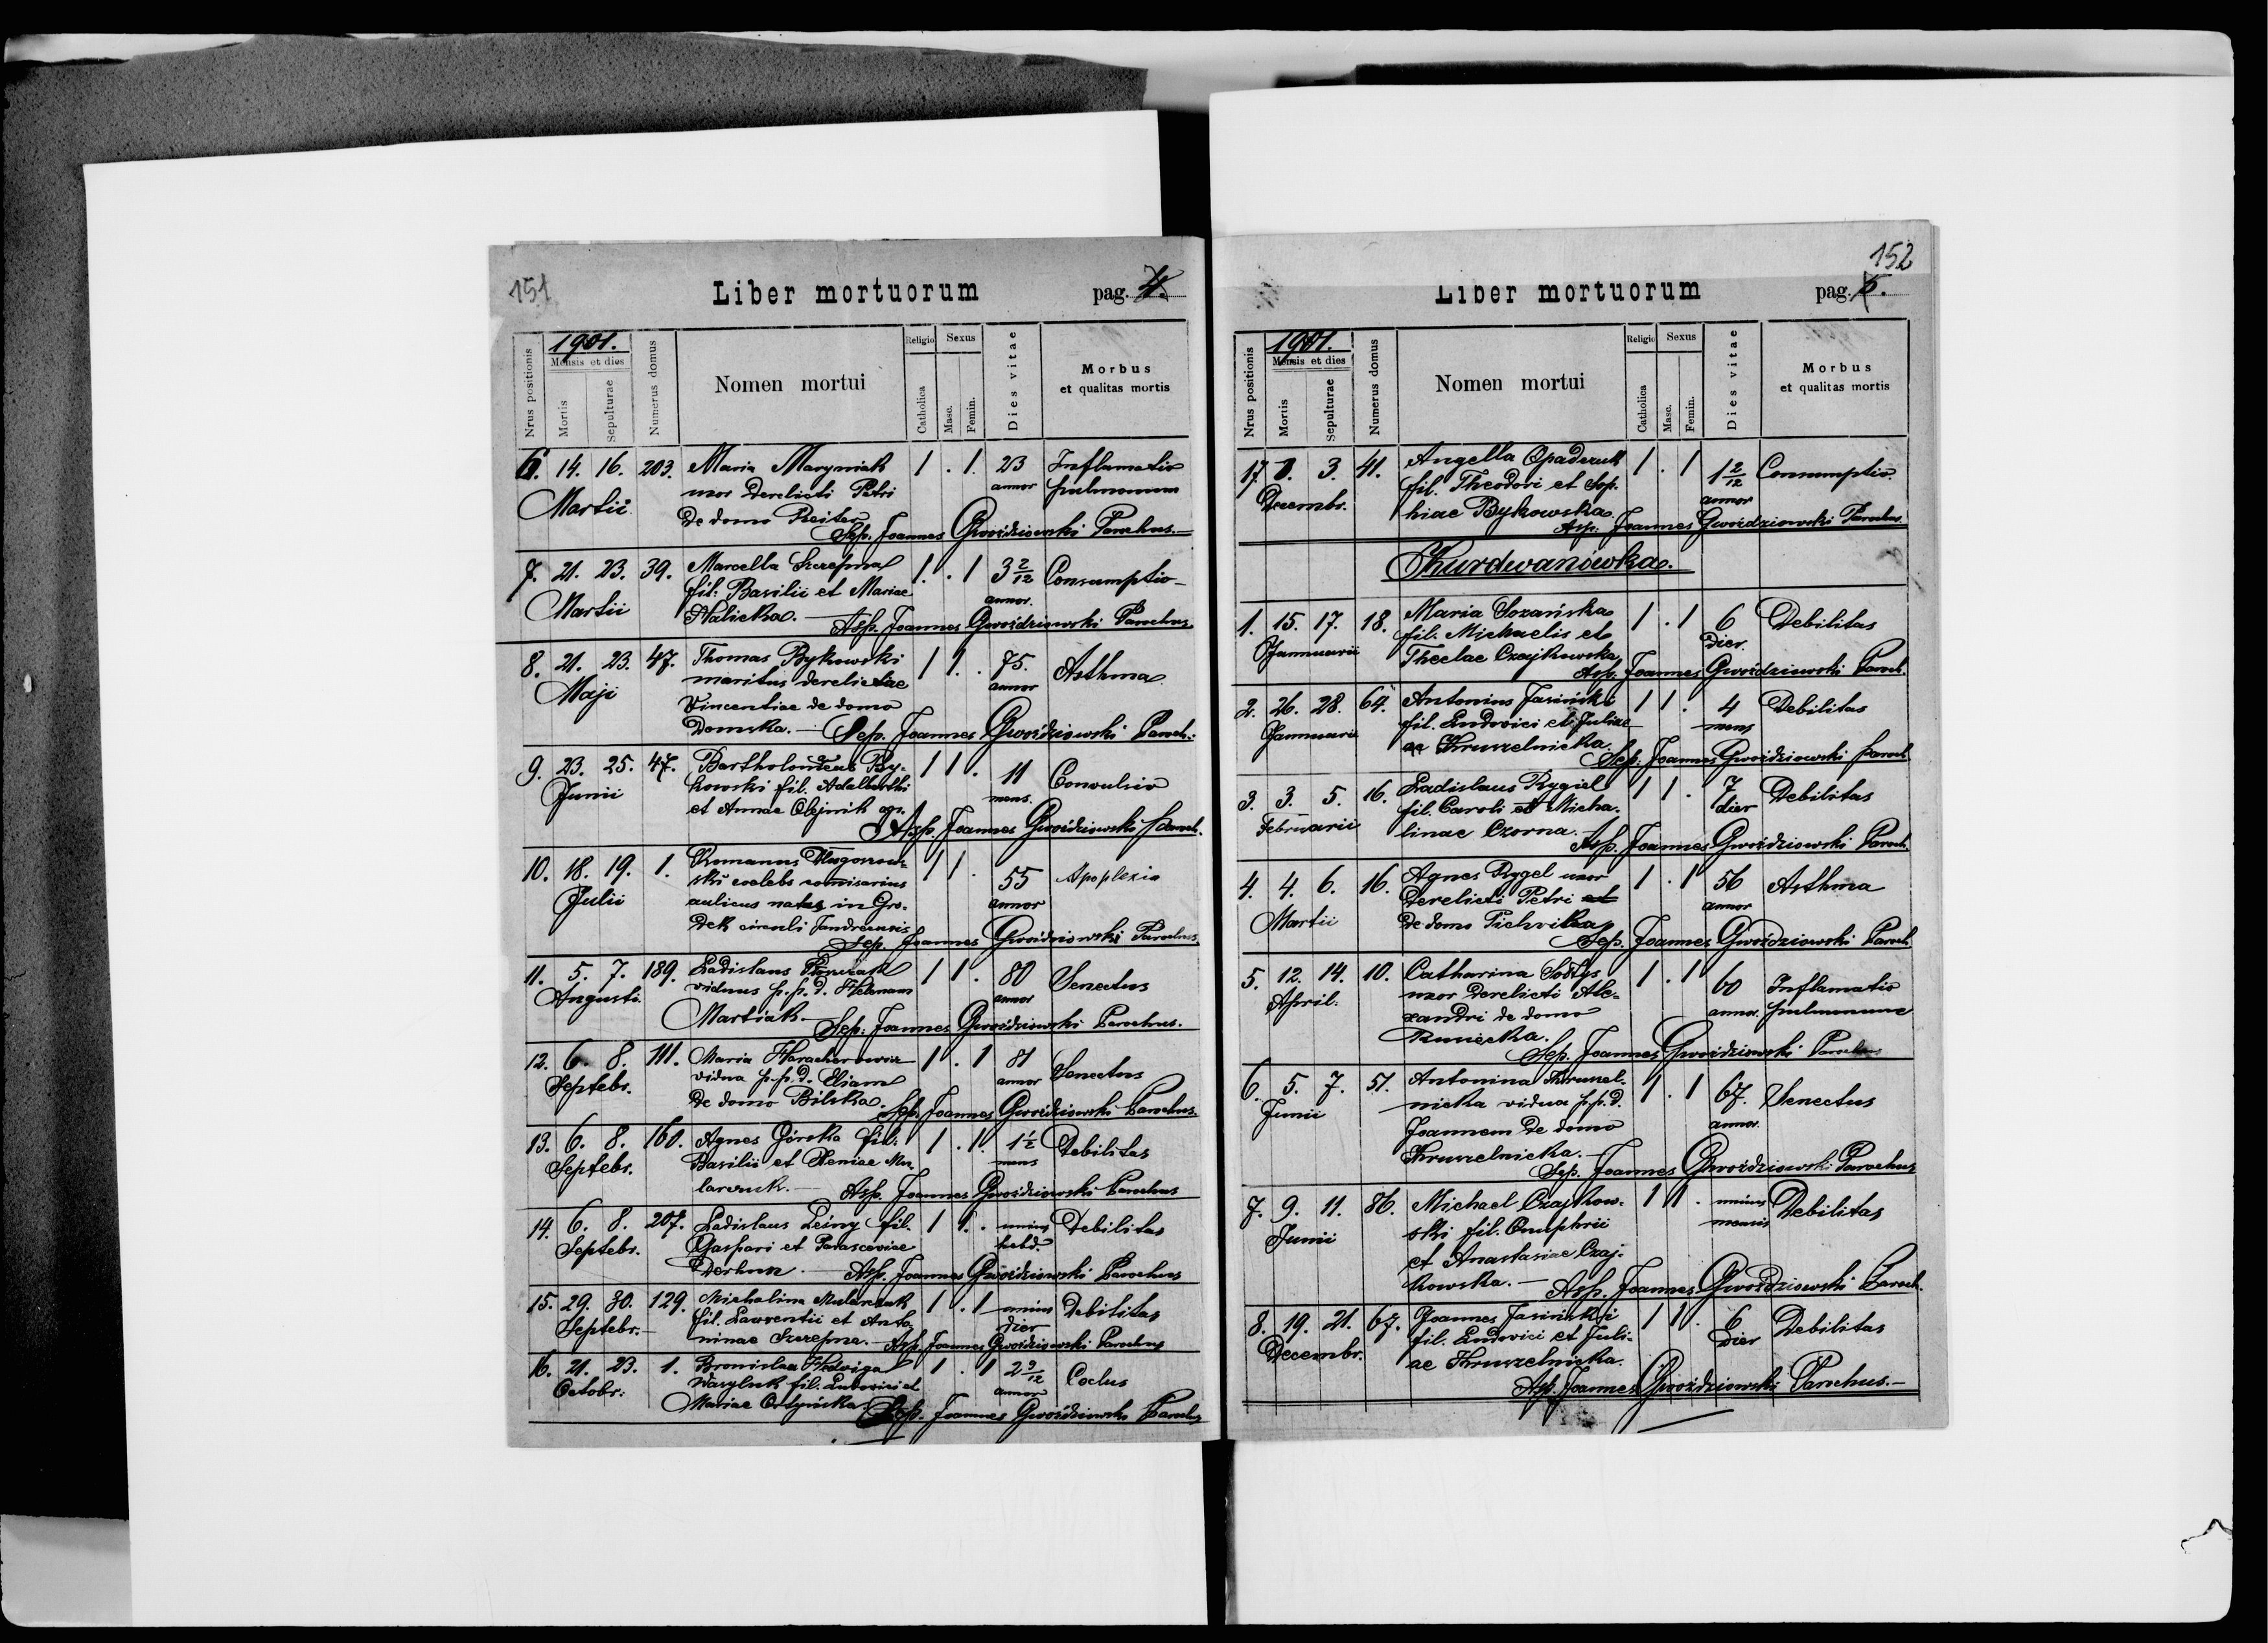 151
Liber mortuorum
pag. 4.
Nrus positionis
1901.
Mensis et dies
Mortis
Sepulturae
Numerus domus
Nomen mortui
Religio
Catholica
Sexus
Masc.
Femin.
Dies vitae
Morbus
et qualitas mortis
6. 14. 16. 203. Maria Maryniak 1 . 1. 23 Inflamatio
Martii uxor derelicti Petri annor pulmonum
de domo Reiter
Sep. Joannes Gwoździowski Parochus.—
7. 21. 23. 39. Marcella Szczepna 1. . 1 3 2/12 Consumptio—
Martii fil: Basilii et Mariae annor.
Halicka. — Asp. Joannes Gwoździowski Parochus
8. 21. 23. 47. Thomas Bykowski 1 1. . 75. Asthma
Maji maritus derelictae annor
Vincentiae de domo
Domska. — Sep. Joannes Gwoździowski Paroch.
9. 23. 25. 47. Bartholomeus By- 1 1 . 11 Convulsio
Junii kowski fil. Adalberthi mens.
et Annae Olejnik agr.
Asp. Joannes Gwoździowski Paroch.
10. 18. 19. 1. Romanus Długoszow- 1 1 . 55 Apoplexia
Julii ski coelebs comisarius annor
aulicus natus in Gro-
dek circuli
Sep. Joannes Gwoździowski Parochus
11. 5. 7. 189. Ladislaus 1 1 . 80 Senectus
Augusti. viduus p. p. d. Helenam annor
Martiak.— Sep. Joannes Gwoździowski Parochus.
12. 6. 8. 111. Maria 1 . 1 81 Senectus
Septebr. vidua p. p. d. Eliam annor
de domo Bilska. Sep. Joannes Gwoździowski Parochus.
13. 6. 8. 160. Agnes Górska fil: 1 . 1. 1 1/2 Debilitas
Septebr. Basilii et Xeniae Mu- mens
larczuk. — Asp. Joannes Gwoździowski Parochus
14. 6. 8. 207. Ladislaus Leiny fil. 1 1. . unius Debilitas
Septebr. Gaspari et Parasceviae hebd.
— Asp. Joannes Gwoździowski Parochus
15. 29. 30. 129. Michalina Mularczuk 1 . 1 unius Debilitas
Septebr.— fil. Laurentii et Anto- dier
ninae Szczepna. — Asp. Joannes Gwoździowski Parochus
16. 21. 23. 1. Bronislaa Hedviga 1 . 1 2 9/12 Coclus
Octobr: Wasyluk fil. Ludovici et annor
Mariae Ortyńska Sep. Joannes Gwoździowski Parochus
152
Liber mortuorum
pag. 5.
Nrus positionis
1901.
Mensis et dies
Mortis
Sepulturae
Numerus domus
Nomen mortui
Religio
Catholica
Sexus
Masc.
Femin.
Dies vitae
Morbus
et qualitas mortis
17. 3. 41. Angella Opaderuk 1 . 1 1 2/12 Consumptio
Decembr. fil. Theodori et Sop- annor
hiae Bykowska.
Asp. Joannes Gwoździowski Parochus.
Kurdwanówka.
1. 15. 17. 18. Maria Sozańska 1 . 1 6 Debilitas
Januarii fil. Michaelis et dier.
Theclae Czajkowska
Asp. Joannes Gwoździowski Paroch.
2. 26. 28. 64. Antonius Jasiński 1 1 . 4 Debilitas
Januarii fil. Ludovici et Juliae mens
ae Kruszelnicka.
Sep. Joannes Gwoździowski Paroch
3. 3. 5. 16. Ladislaus Rygiel 1 1 . 7 Debilitas
Februarii fil. Caroli et Micha- dier
linae Czorna. —
Asp. Joannes Gwoździowski Paroch.
4. 4. 6. 16. Agnes Rygel uxor 1 . 1 56 Asthma
Martii derelicti Petri et annor
de domo
Sep. Joannes Gwoździowski Paroch
5. 12. 14. 10. Catharina Sołtys 1 . 1 60 Inflamatio
April. uxor derelicti Ale- annor. pulmonum
xandri de domo
Sep. Joannes Gwoździowski Parochus
6. 5. 7. 51. Antonina Kruszel- 1 . 1 67. Senectus
Junii nicka vidua p. p. d. annor.
Joannem de domo
Kruszelnicka. —
Sep. Joannes Gwoździowski Parochus
7. 9. 11. 86. Michael Czajkow- 1 1 . unius Debilitas
Junii ski fil. Onuphrii mensis
et Anastasiae Czaj-
kowska. — Asp. Joannes Gwoździowski Paroch.
8. 19. 21. 67. Joannes Jasiński 1 1 . 6 Debilitas
Decembr. fil. Ludovici et Juli- dier
ae Kruszelnicka.
Asp. Joannes Gwoździowski Parochus.—